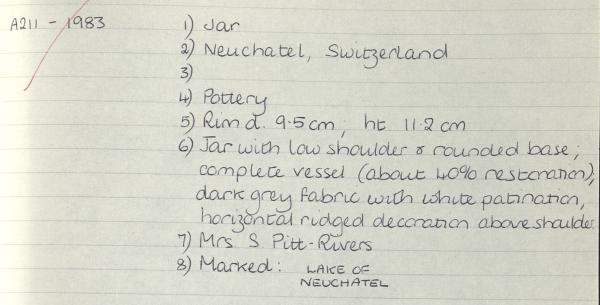 A211 - 1983
1) Jar
2) Neuchatel, Switzerland
3)
4) Pottery
5) Rim d. 9.5cm; ht. 11.2 cm
6) Jar with low shoulder & rounded base;
complete vessel (about 40% restoration);
dark grey fabric with white patination,
horizontal ridged decoration above shoulder
7) Mrs. S. Pitt-Rivers
8) Marked: LAKE OF
NEUCHATEL